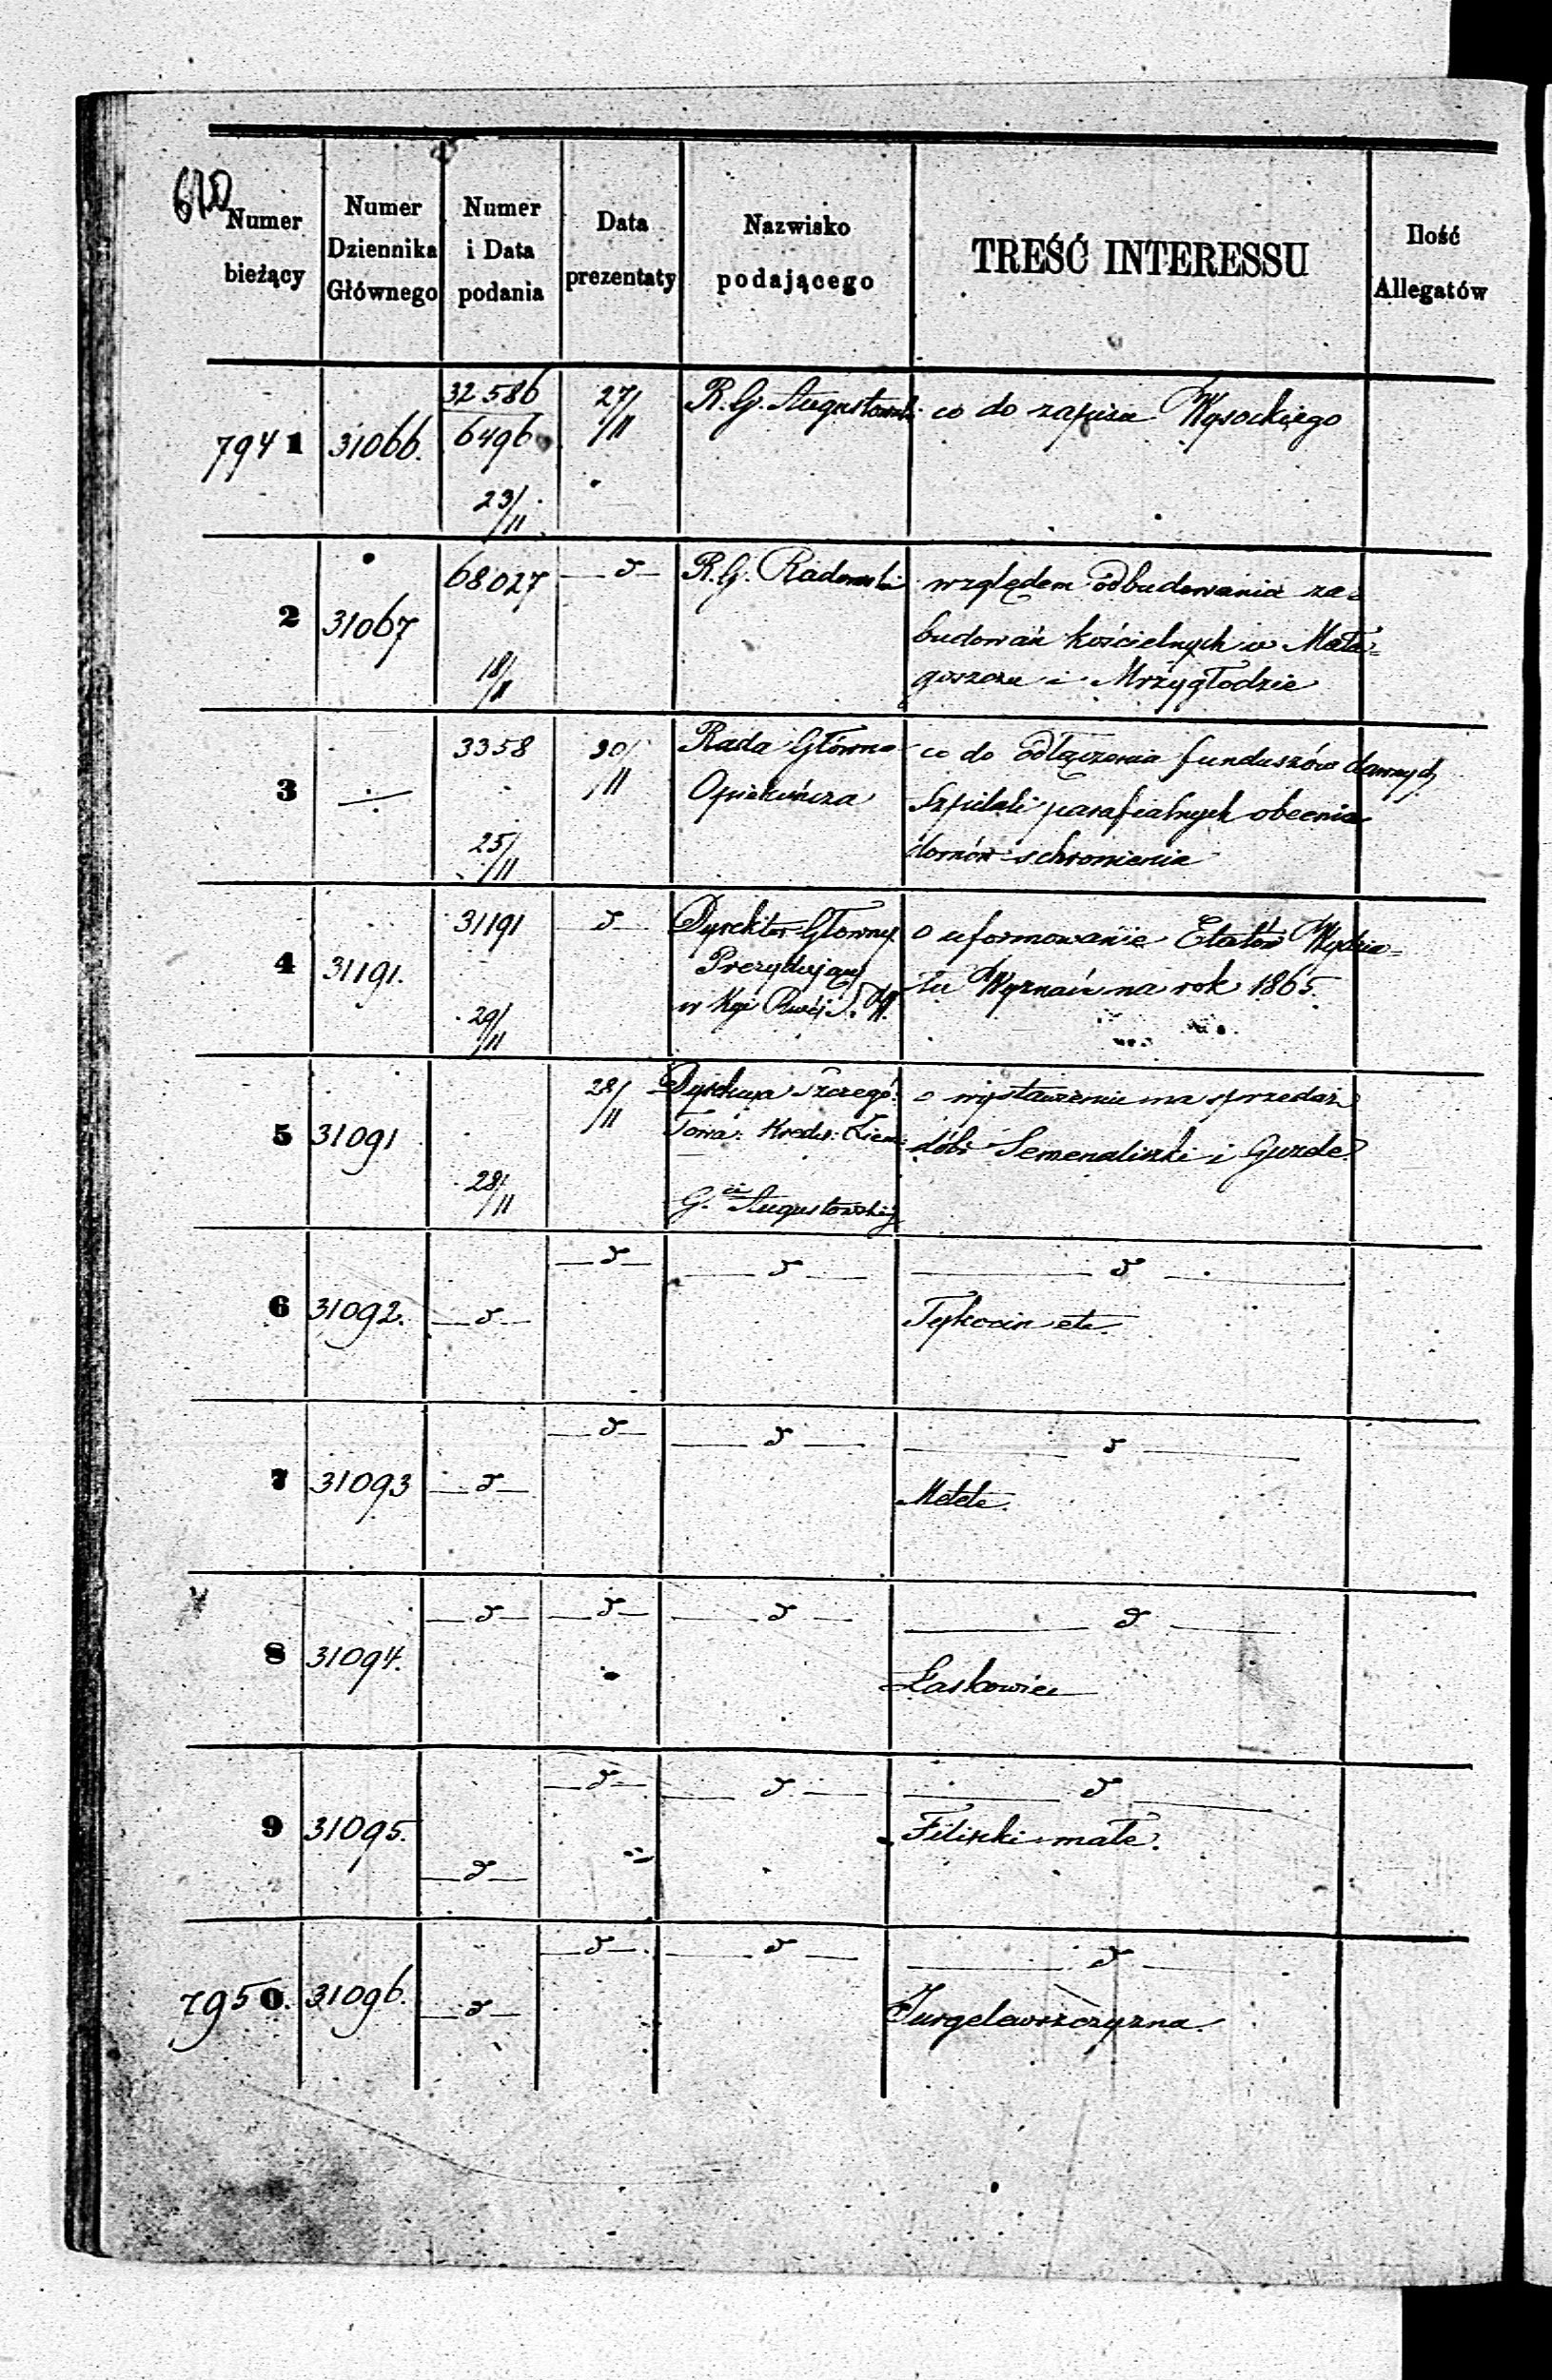 610
Numer bieżący
Numer Dziennika Głównego
Numer i Data podania
Data prezentaty
Nazwisko podającego
TREŚĆ INTERESSU
Ilość Allegatów
7941 31066. 32586 27/11 R. G. Augustowski co do zapisu Wysockiego
6496
23/11
2 31067 68027 — d — R. G. Radomski względem odbudowania za=
budowań kościelnych w Mało=
18/11 goszczu i Mrzygłodzie
3 3358 30/11 Rada Główna co do odłączenia funduszów dawnych
Opiekuńcza Szpitali parafialnych obecnie
25/11 domów schronienia
4 31191. 31191 d Dyrektor Głowny o uformowanie Etatów Wydzia=
Prezydujący łu Wyznań na rok 1865.
29/11 w
5 31091 28/11 Dyrekcya Szczegó: o wystawieniu na sprzedaż
Towa: Kredy: Ziem: dóbr Semenaliszki i Guzde
28/11 G. Augustowskiej
6 31092. — d — — d — — d — — d —
Tykocin etc.
7 31093 — d — — d — — d — — d —
Metele.
8 31094. — d — — d — — d — — d —
Łaskowiec
9 31095. — d — — d — — d — — d —
Filiszki małe.
7950. 31096. — d — — d — — d — — d —
Jurgelewszczyzna.